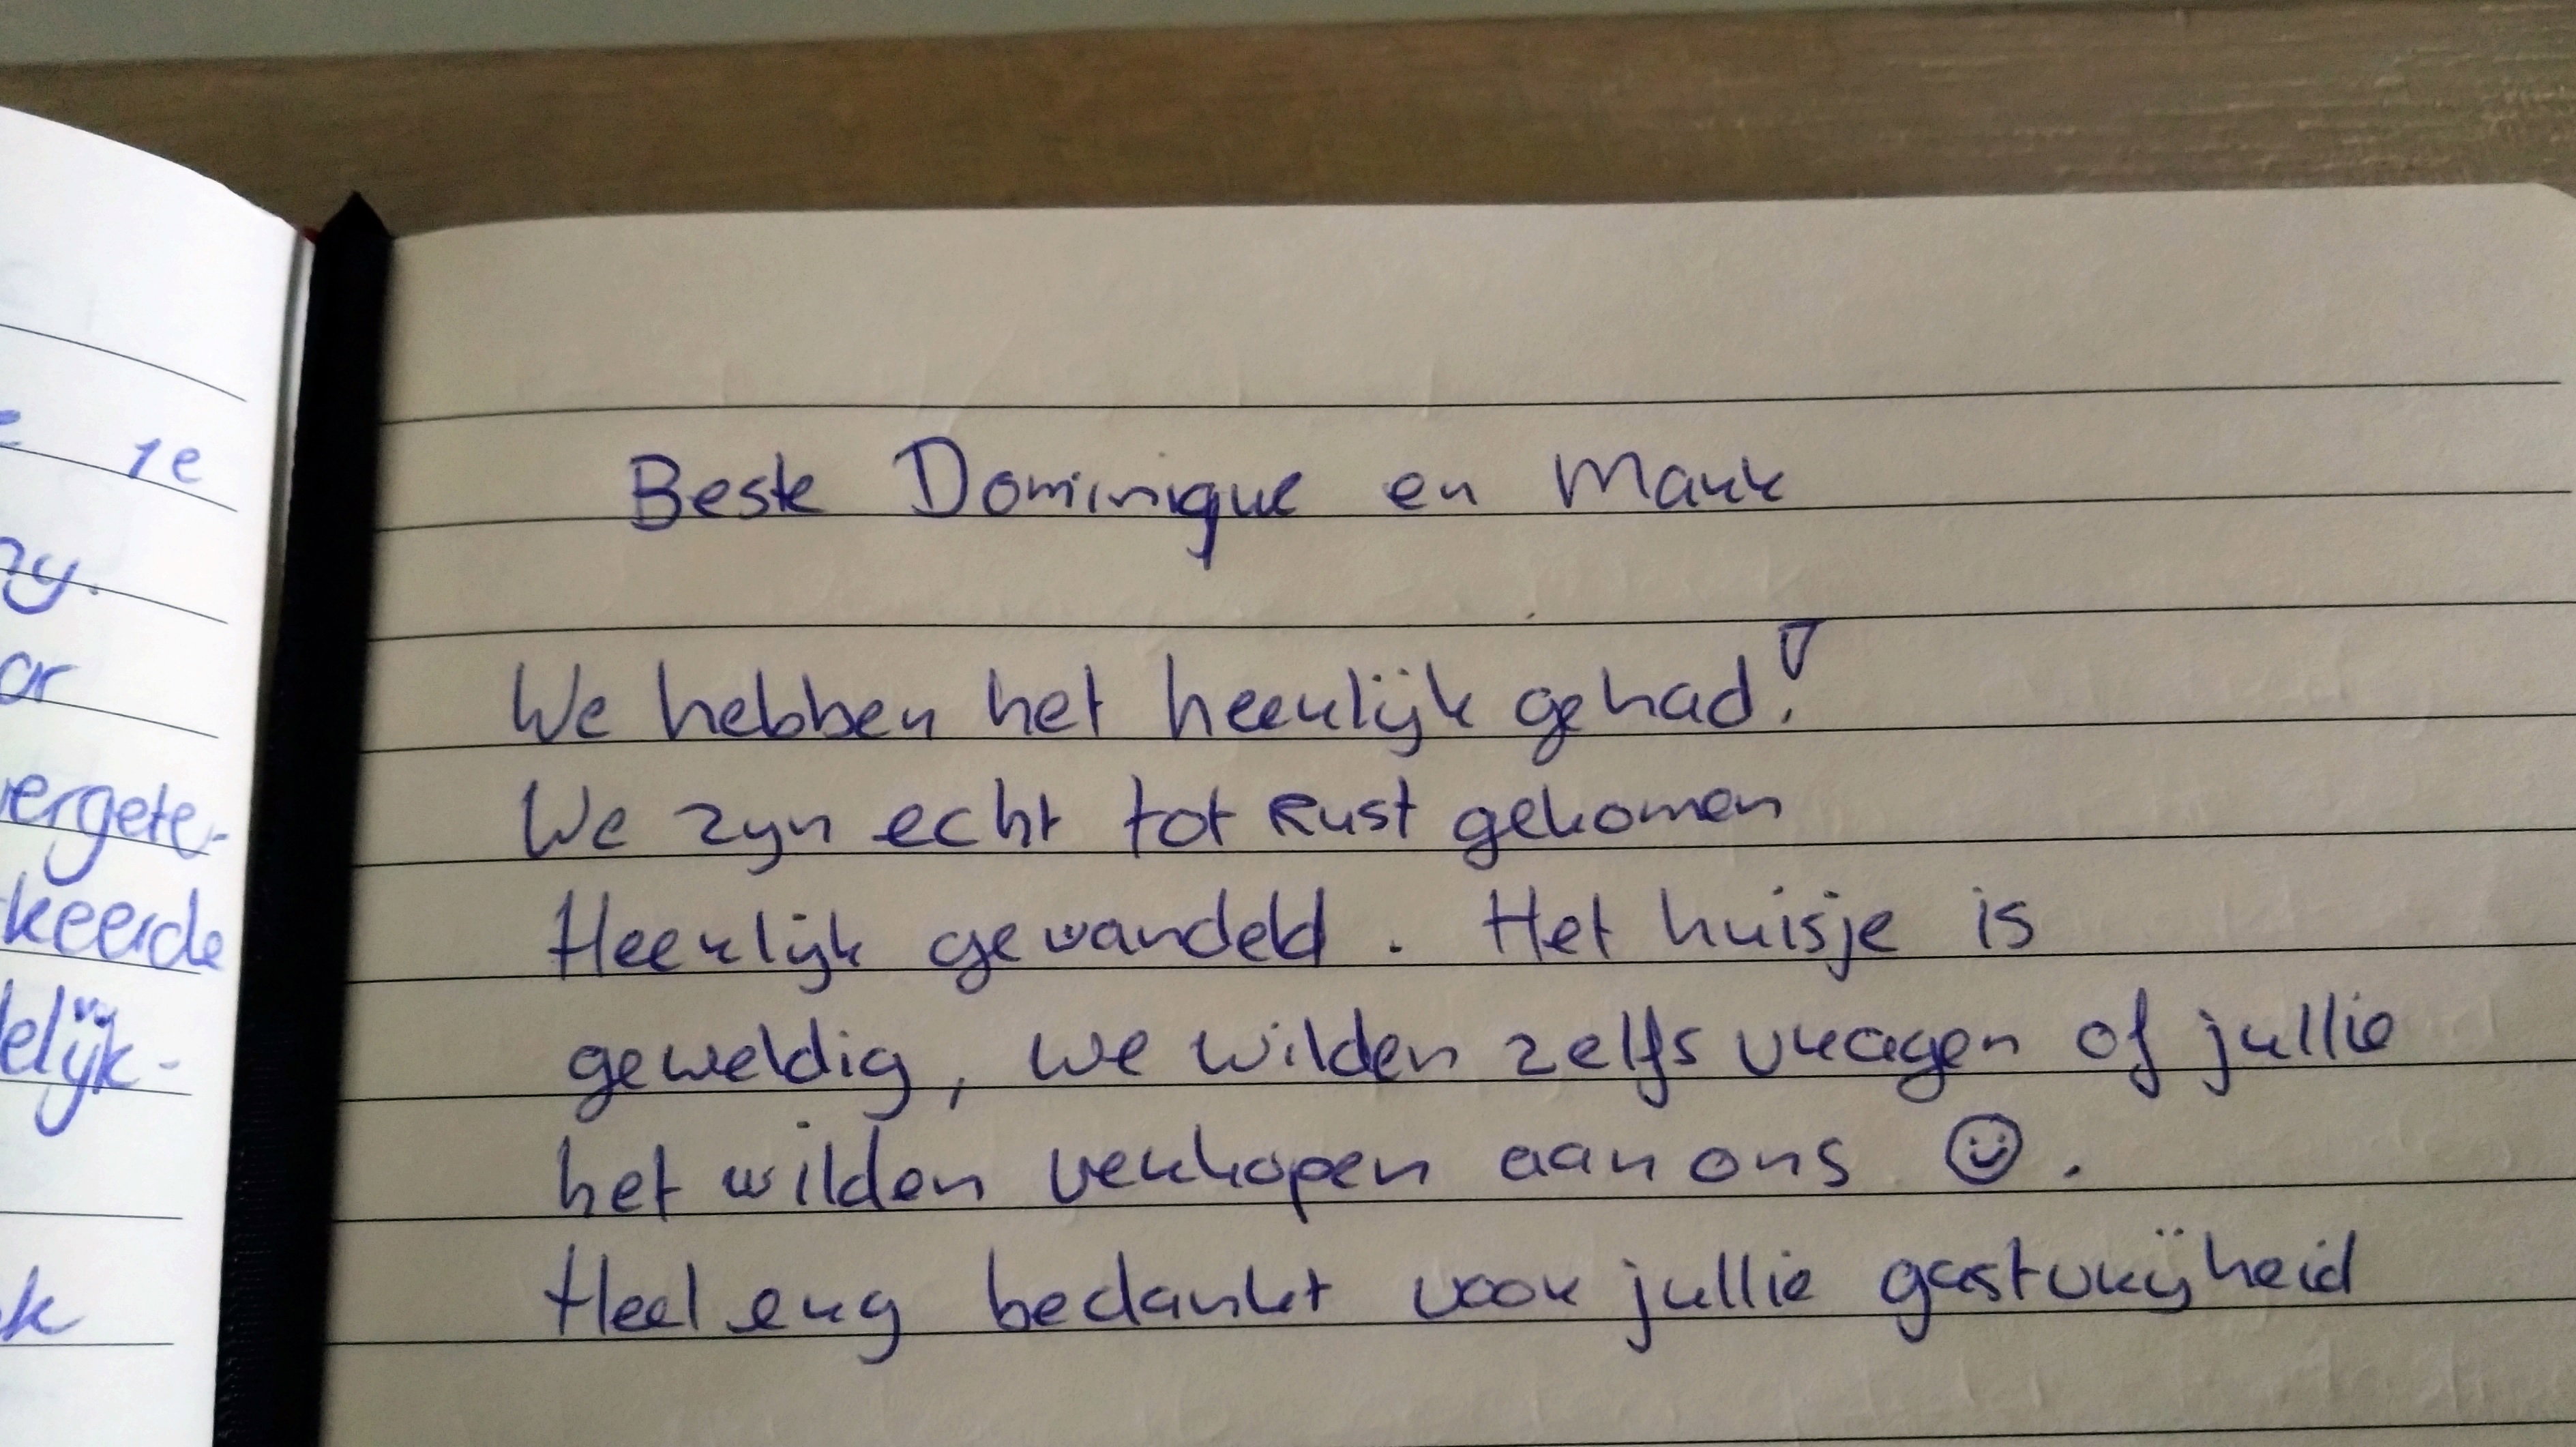 1e
zy.
or
vergete-
keerde
elijk-
k
Beste Dominique en Mark
We hebben het heerlijk gehad!
We zyn echt tot Rust gekomen
Heerlijk gewandeld. Het huisje is
geweldig, we wilden zelfs vragen of jullie
het wilden verkopen aan ons ☺.
Heel erg bedankt voor jullie gastvrijheid